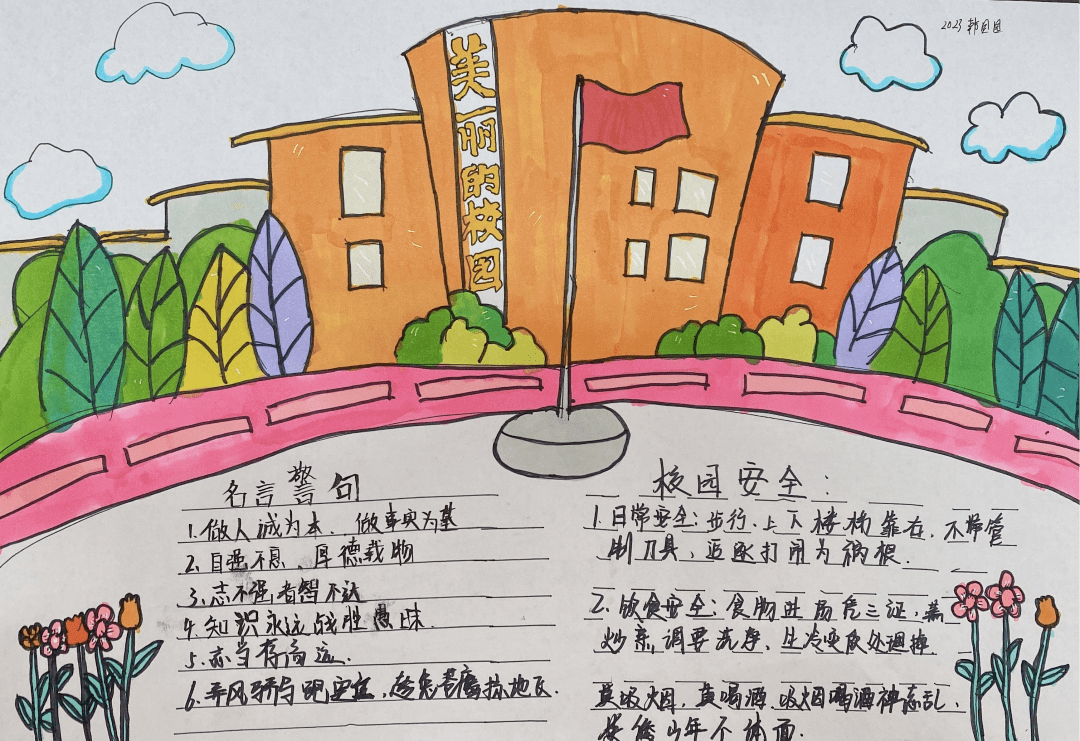 2023 韩团团
美丽的校园
名言警句
1.做人诚为本、做事实为基
2.自强不息、厚德载物
3.志不强者智不达
4.知识永远战胜愚昧
5.志当存高远.
6.
校园安全:
1.日常安全:步行、上下楼梯靠右、不带管
制刀具、追逐打闹为祸根.
2.饮食安全:食物进 三证,蒸
炒 调要洗净,生冷变质处理掉.
莫吸烟,莫喝酒,吸烟喝酒神志乱,
年不体面.